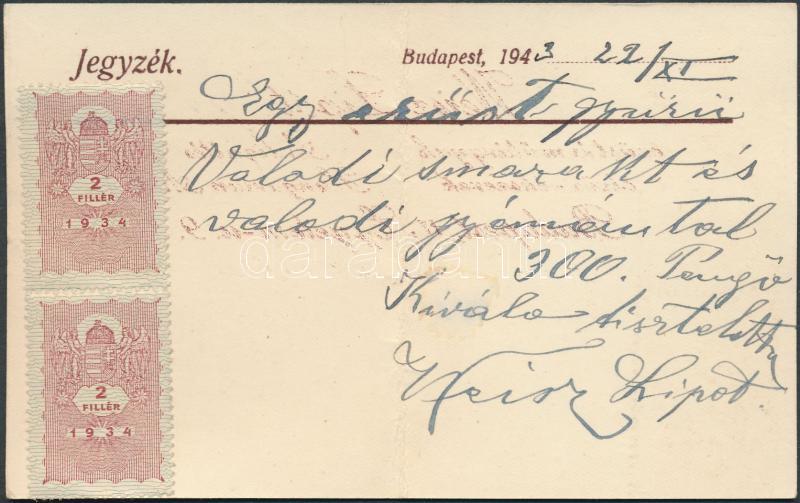 Jegyzék.
Budapest, 1943 22/XI
Egy ezüst gyürü
Valodi smarakt és
valodi gyémántal
300. Pengő
Kíváló tisztelettel
Weisz Lipot.
2
FILLÉR
1934
2
FILLÉR
1934
darabanth